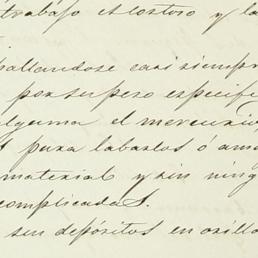 trabajo es costoso y la
hallandose casi siempre
por su peso especifi
alguna el mercurio
para labarlos ó ama
material y sin ning
complicadas.
sin depósitos en orillas